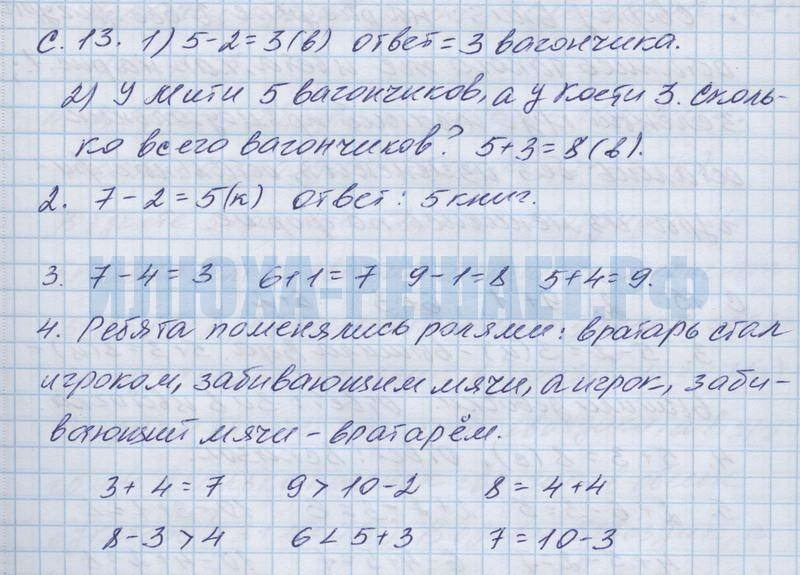 с. 13. 1) 5-2=3(в) ответ=3 вагончика.
2) У Мити 5 вагончиков, а у Кости 3. Сколь-
ко всего вагончиков? 5+3=8(в).
2. 7-2=5(к) ответ: 5 книг.
ИЛЮХА-РЕШАЕТ.РФ
3. 7-4=3 6+1=7 9-1=8 5+4=9.
4. Ребята поменялись ролями: вратарь стал
игроком, забивающим мячи, а игрок, заби-
вающий мячи - вратарём.
3+4=7 9>10-2 8=4+4
8-3>4 6<5+3 7=10-3